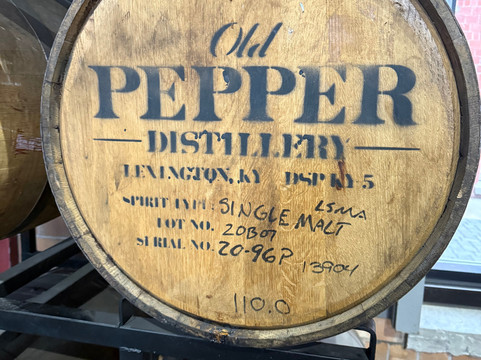 Old
PEPPER
DISTILLERY
LEXINGTON, KY DSP KY-5
SPIRIT TYPE: SINGLE MALT LSMA
LOT NO. 20B07
SERIAL NO. 20-96P
13904
110.0